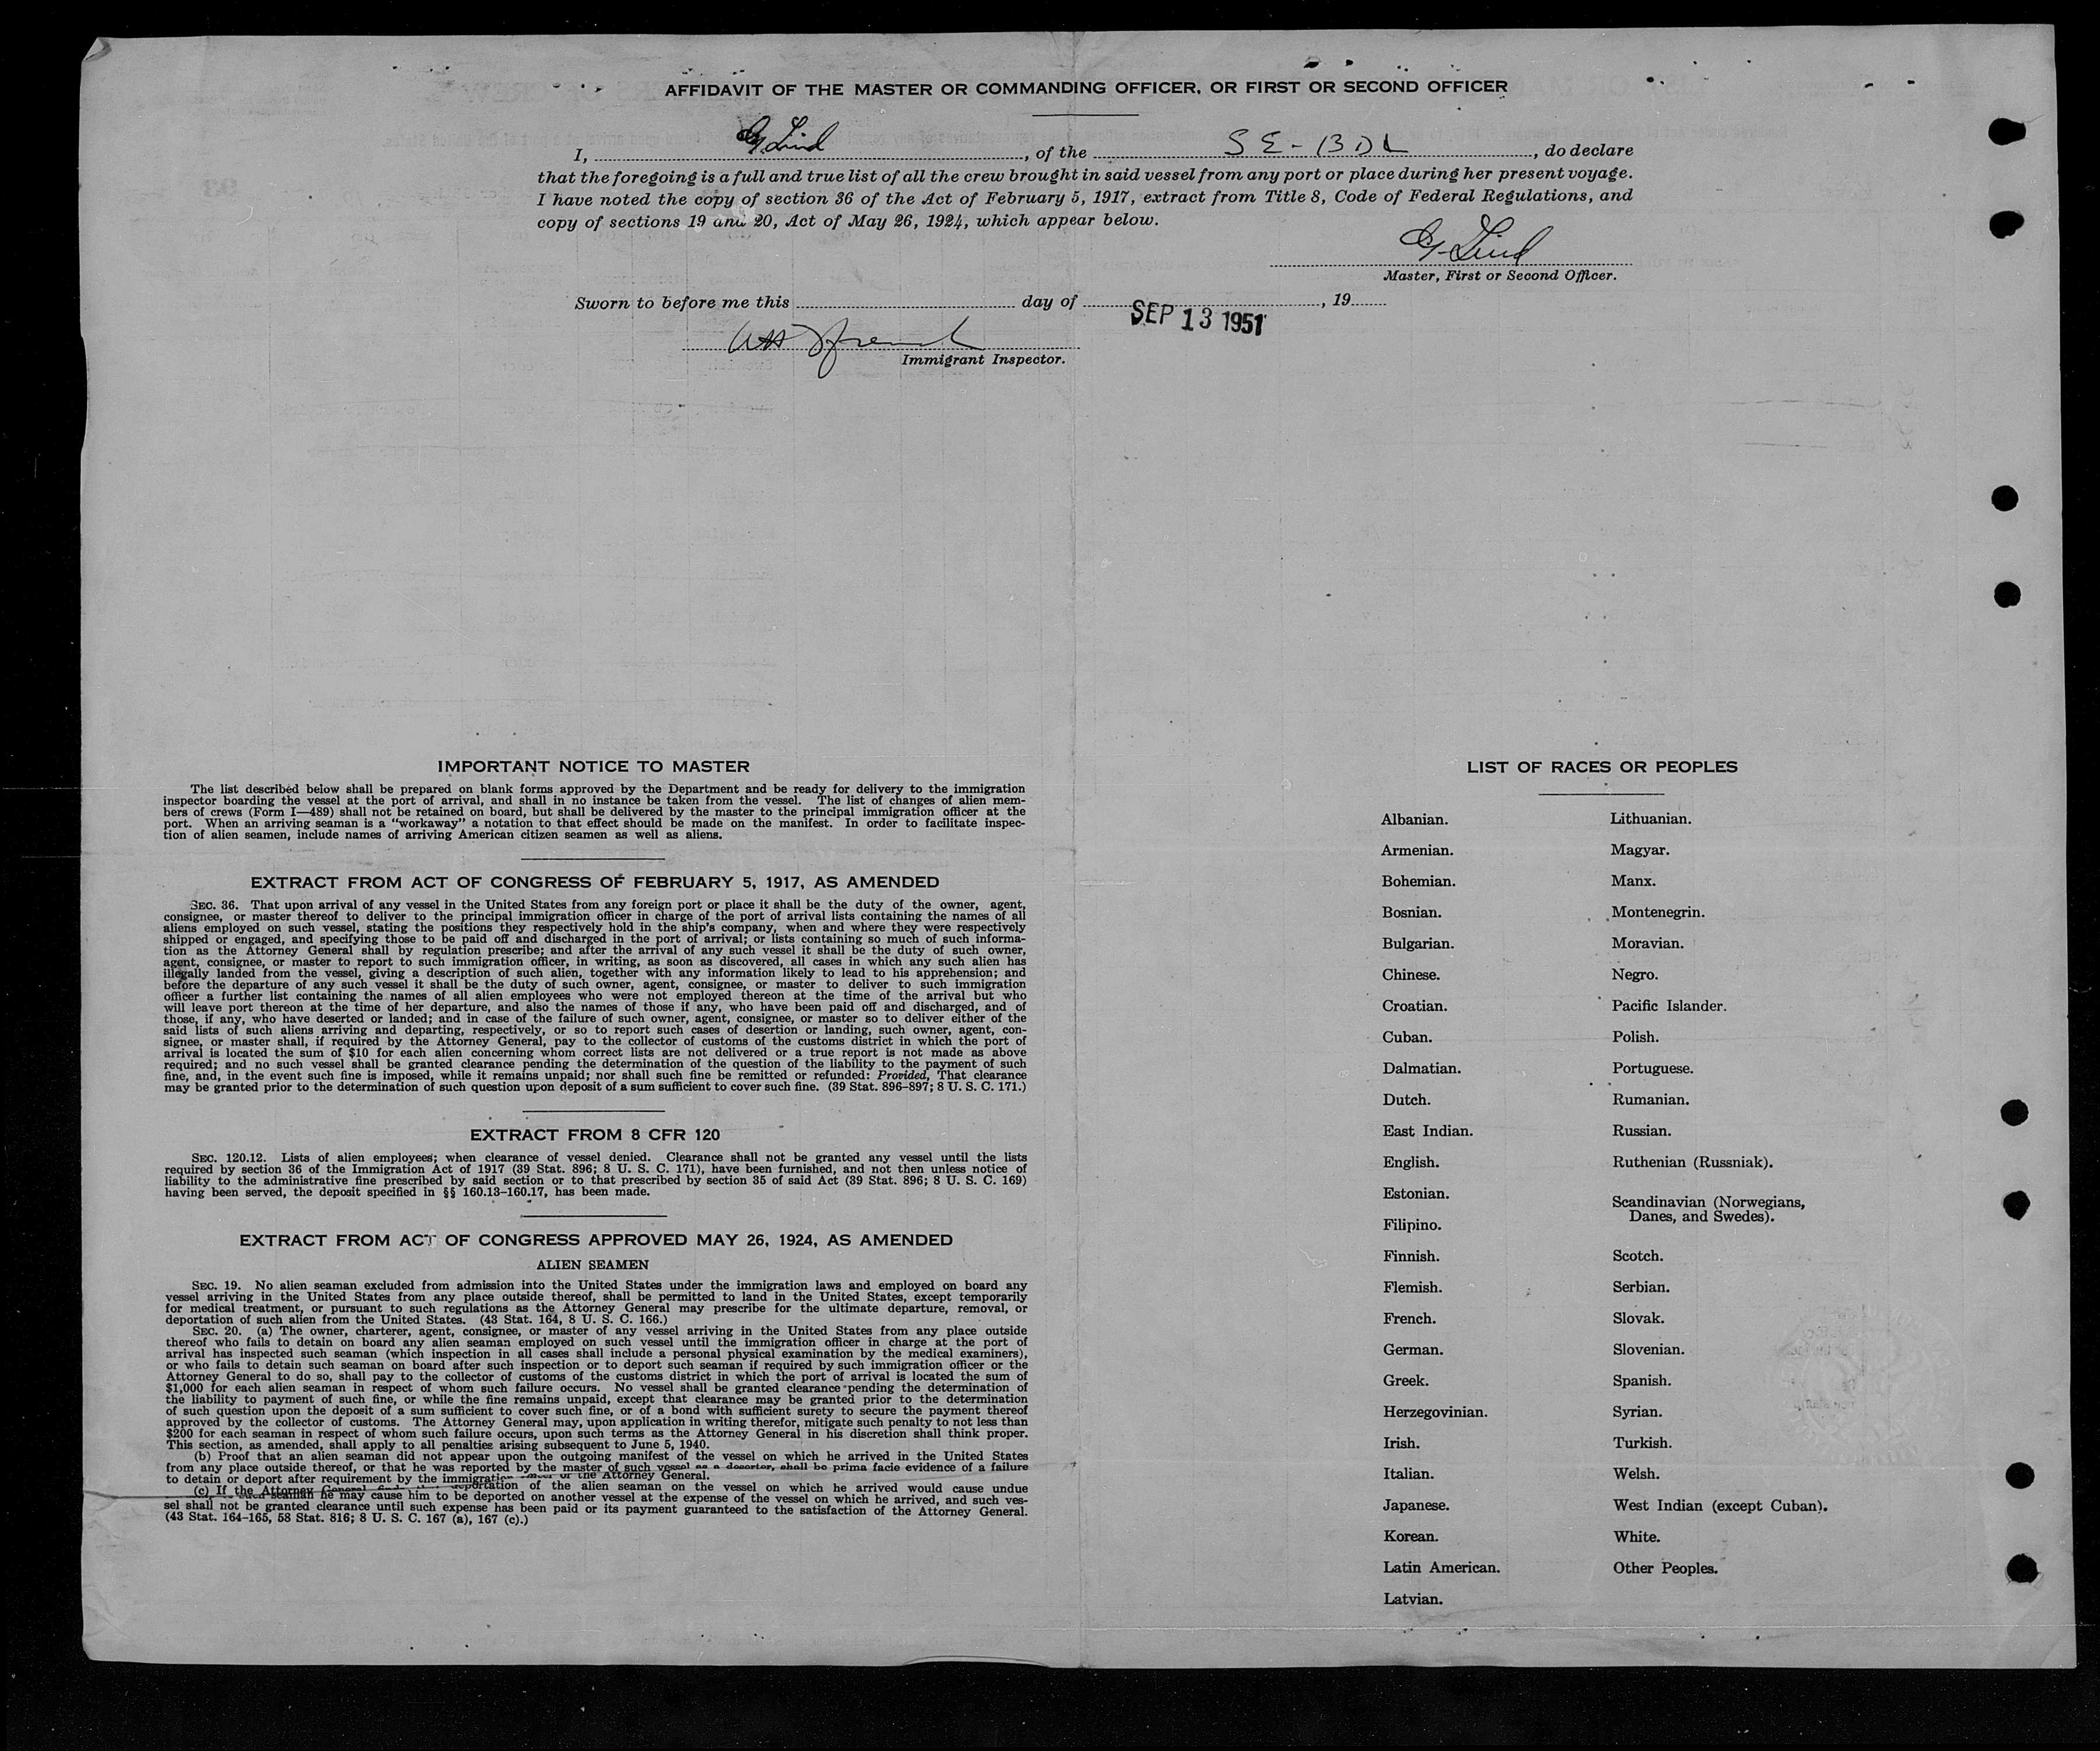 AFFIDAVIT OF THE MASTER OR COMMANDING OFFICER, OR FIRST OR SECOND OFFICER
I, G. Lind, of the SE-BDL, do declare
that the foregoing is a full and true list of all the crew brought in said vessel from any port or place during her present voyage.
I have noted the copy of section 36 of the Act of February 5, 1917, extract from Title 8, Code of Federal Regulations, and
copy of sections 19 and 20, Act of May 26, 1924, which appear below.
G. Lind
Master, First or Second Officer.
Sworn to before me this day of , 19
SEP 13 1951
Immigrant Inspector.
IMPORTANT NOTICE TO MASTER
The list described below shall be prepared on blank forms approved by the Department and be ready for delivery to the immigration
inspector boarding the vessel at the port of arrival, and shall in no instance be taken from the vessel. The list of changes of alien mem-
bers of crews (Form I—489) shall not be retained on board, but shall be delivered by the master to the principal immigration officer at the
port. When an arriving seaman is a "workaway" a notation to that effect should be made on the manifest. In order to facilitate inspec-
tion of alien seamen, include names of arriving American citizen seamen as well as aliens.
EXTRACT FROM ACT OF CONGRESS OF FEBRUARY 5, 1917, AS AMENDED
SEC. 36. That upon arrival of any vessel in the United States from any foreign port or place it shall be the duty of the owner, agent,
consignee, or master thereof to deliver to the principal immigration officer in charge of the port of arrival lists containing the names of all
aliens employed on such vessel, stating the positions they respectively hold in the ship's company, when and where they were respectively
shipped or engaged, and specifying those to be paid off and discharged in the port of arrival; or lists containing so much of such informa-
tion as the Attorney General shall by regulation prescribe; and after the arrival of any such vessel it shall be the duty of such owner,
agent, consignee, or master to report to such immigration officer, in writing, as soon as discovered, all cases in which any such alien has
illegally landed from the vessel, giving a description of such alien, together with any information likely to lead to his apprehension; and
before the departure of any such vessel it shall be the duty of such owner, agent, consignee, or master to deliver to such immigration
officer a further list containing the names of all alien employees who were not employed thereon at the time of the arrival but who
will leave port thereon at the time of her departure, and also the names of those if any, who have been paid off and discharged, and of
those, if any, who have deserted or landed; and in case of the failure of such owner, agent, consignee, or master so to deliver either of the
said lists of such aliens arriving and departing, respectively, or so to report such cases of desertion or landing, such owner, agent, con-
signee, or master shall, if required by the Attorney General, pay to the collector of customs of the customs district in which the port of
arrival is located the sum of $10 for each alien concerning whom correct lists are not delivered or a true report is not made as above
required; and no such vessel shall be granted clearance pending the determination of the question of the liability to the payment of such
fine, and, in the event such fine is imposed, while it remains unpaid; nor shall such fine be remitted or refunded: Provided, That clearance
may be granted prior to the determination of such question upon deposit of a sum sufficient to cover such fine. (39 Stat. 896–897; 8 U. S. C. 171.)
EXTRACT FROM 8 CFR 120
SEC. 120.12. Lists of alien employees; when clearance of vessel denied. Clearance shall not be granted any vessel until the lists
required by section 36 of the Immigration Act of 1917 (39 Stat. 896; 8 U. S. C. 171), have been furnished, and not then unless notice of
liability to the administrative fine prescribed by said section or to that prescribed by section 35 of said Act (39 Stat. 896; 8 U. S. C. 169)
having been served, the deposit specified in §§ 160.13–160.17, has been made.
EXTRACT FROM ACT OF CONGRESS APPROVED MAY 26, 1924, AS AMENDED
ALIEN SEAMEN
SEC. 19. No alien seaman excluded from admission into the United States under the immigration laws and employed on board any
vessel arriving in the United States from any place outside thereof, shall be permitted to land in the United States, except temporarily
for medical treatment, or pursuant to such regulations as the Attorney General may prescribe for the ultimate departure, removal, or
deportation of such alien from the United States. (43 Stat. 164, 8 U. S. C. 166.)
SEC. 20. (a) The owner, charterer, agent, consignee, or master of any vessel arriving in the United States from any place outside
thereof who fails to detain on board any alien seaman employed on such vessel until the immigration officer in charge at the port of
arrival has inspected such seaman (which inspection in all cases shall include a personal physical examination by the medical examiners),
or who fails to detain such seaman on board after such inspection or to deport such seaman if required by such immigration officer or the
Attorney General to do so, shall pay to the collector of customs of the customs district in which the port of arrival is located the sum of
$1,000 for each alien seaman in respect of whom such failure occurs. No vessel shall be granted clearance pending the determination of
the liability to payment of such fine, or while the fine remains unpaid, except that clearance may be granted prior to the determination
of such question upon the deposit of a sum sufficient to cover such fine, or of a bond with sufficient surety to secure the payment thereof
approved by the collector of customs. The Attorney General may, upon application in writing therefor, mitigate such penalty to not less than
$200 for each seaman in respect of whom such failure occurs, upon such terms as the Attorney General in his discretion shall think proper.
This section, as amended, shall apply to all penalties arising subsequent to June 5, 1940.
(b) Proof that an alien seaman did not appear upon the outgoing manifest of the vessel on which he arrived in the United States
from any place outside thereof, or that he was reported by the master of such vessel as a deserter, shall be prima facie evidence of a failure
to detain or deport after requirement by the immigration officer or the Attorney General.
(c) If the Attorney General finds that deportation of the alien seaman on the vessel on which he arrived would cause undue
seaman he may cause him to be deported on another vessel at the expense of the vessel on which he arrived, and such ves-
sel shall not be granted clearance until such expense has been paid or its payment guaranteed to the satisfaction of the Attorney General.
(43 Stat. 164–165, 58 Stat. 816; 8 U. S. C. 167 (a), 167 (c).)
LIST OF RACES OR PEOPLES
Albanian.
Armenian.
Bohemian.
Bosnian.
Bulgarian.
Chinese.
Croatian.
Cuban.
Dalmatian.
Dutch.
East Indian.
English.
Estonian.
Filipino.
Finnish.
Flemish.
French.
German.
Greek.
Herzegovinian.
Irish.
Italian.
Japanese.
Korean.
Latin American.
Latvian.
Lithuanian.
Magyar.
Manx.
Montenegrin.
Moravian.
Negro.
Pacific Islander.
Polish.
Portuguese.
Rumanian.
Russian.
Ruthenian (Russniak).
Scandinavian (Norwegians,
Danes, and Swedes).
Scotch.
Serbian.
Slovak.
Slovenian.
Spanish.
Syrian.
Turkish.
Welsh.
West Indian (except Cuban).
White.
Other Peoples.